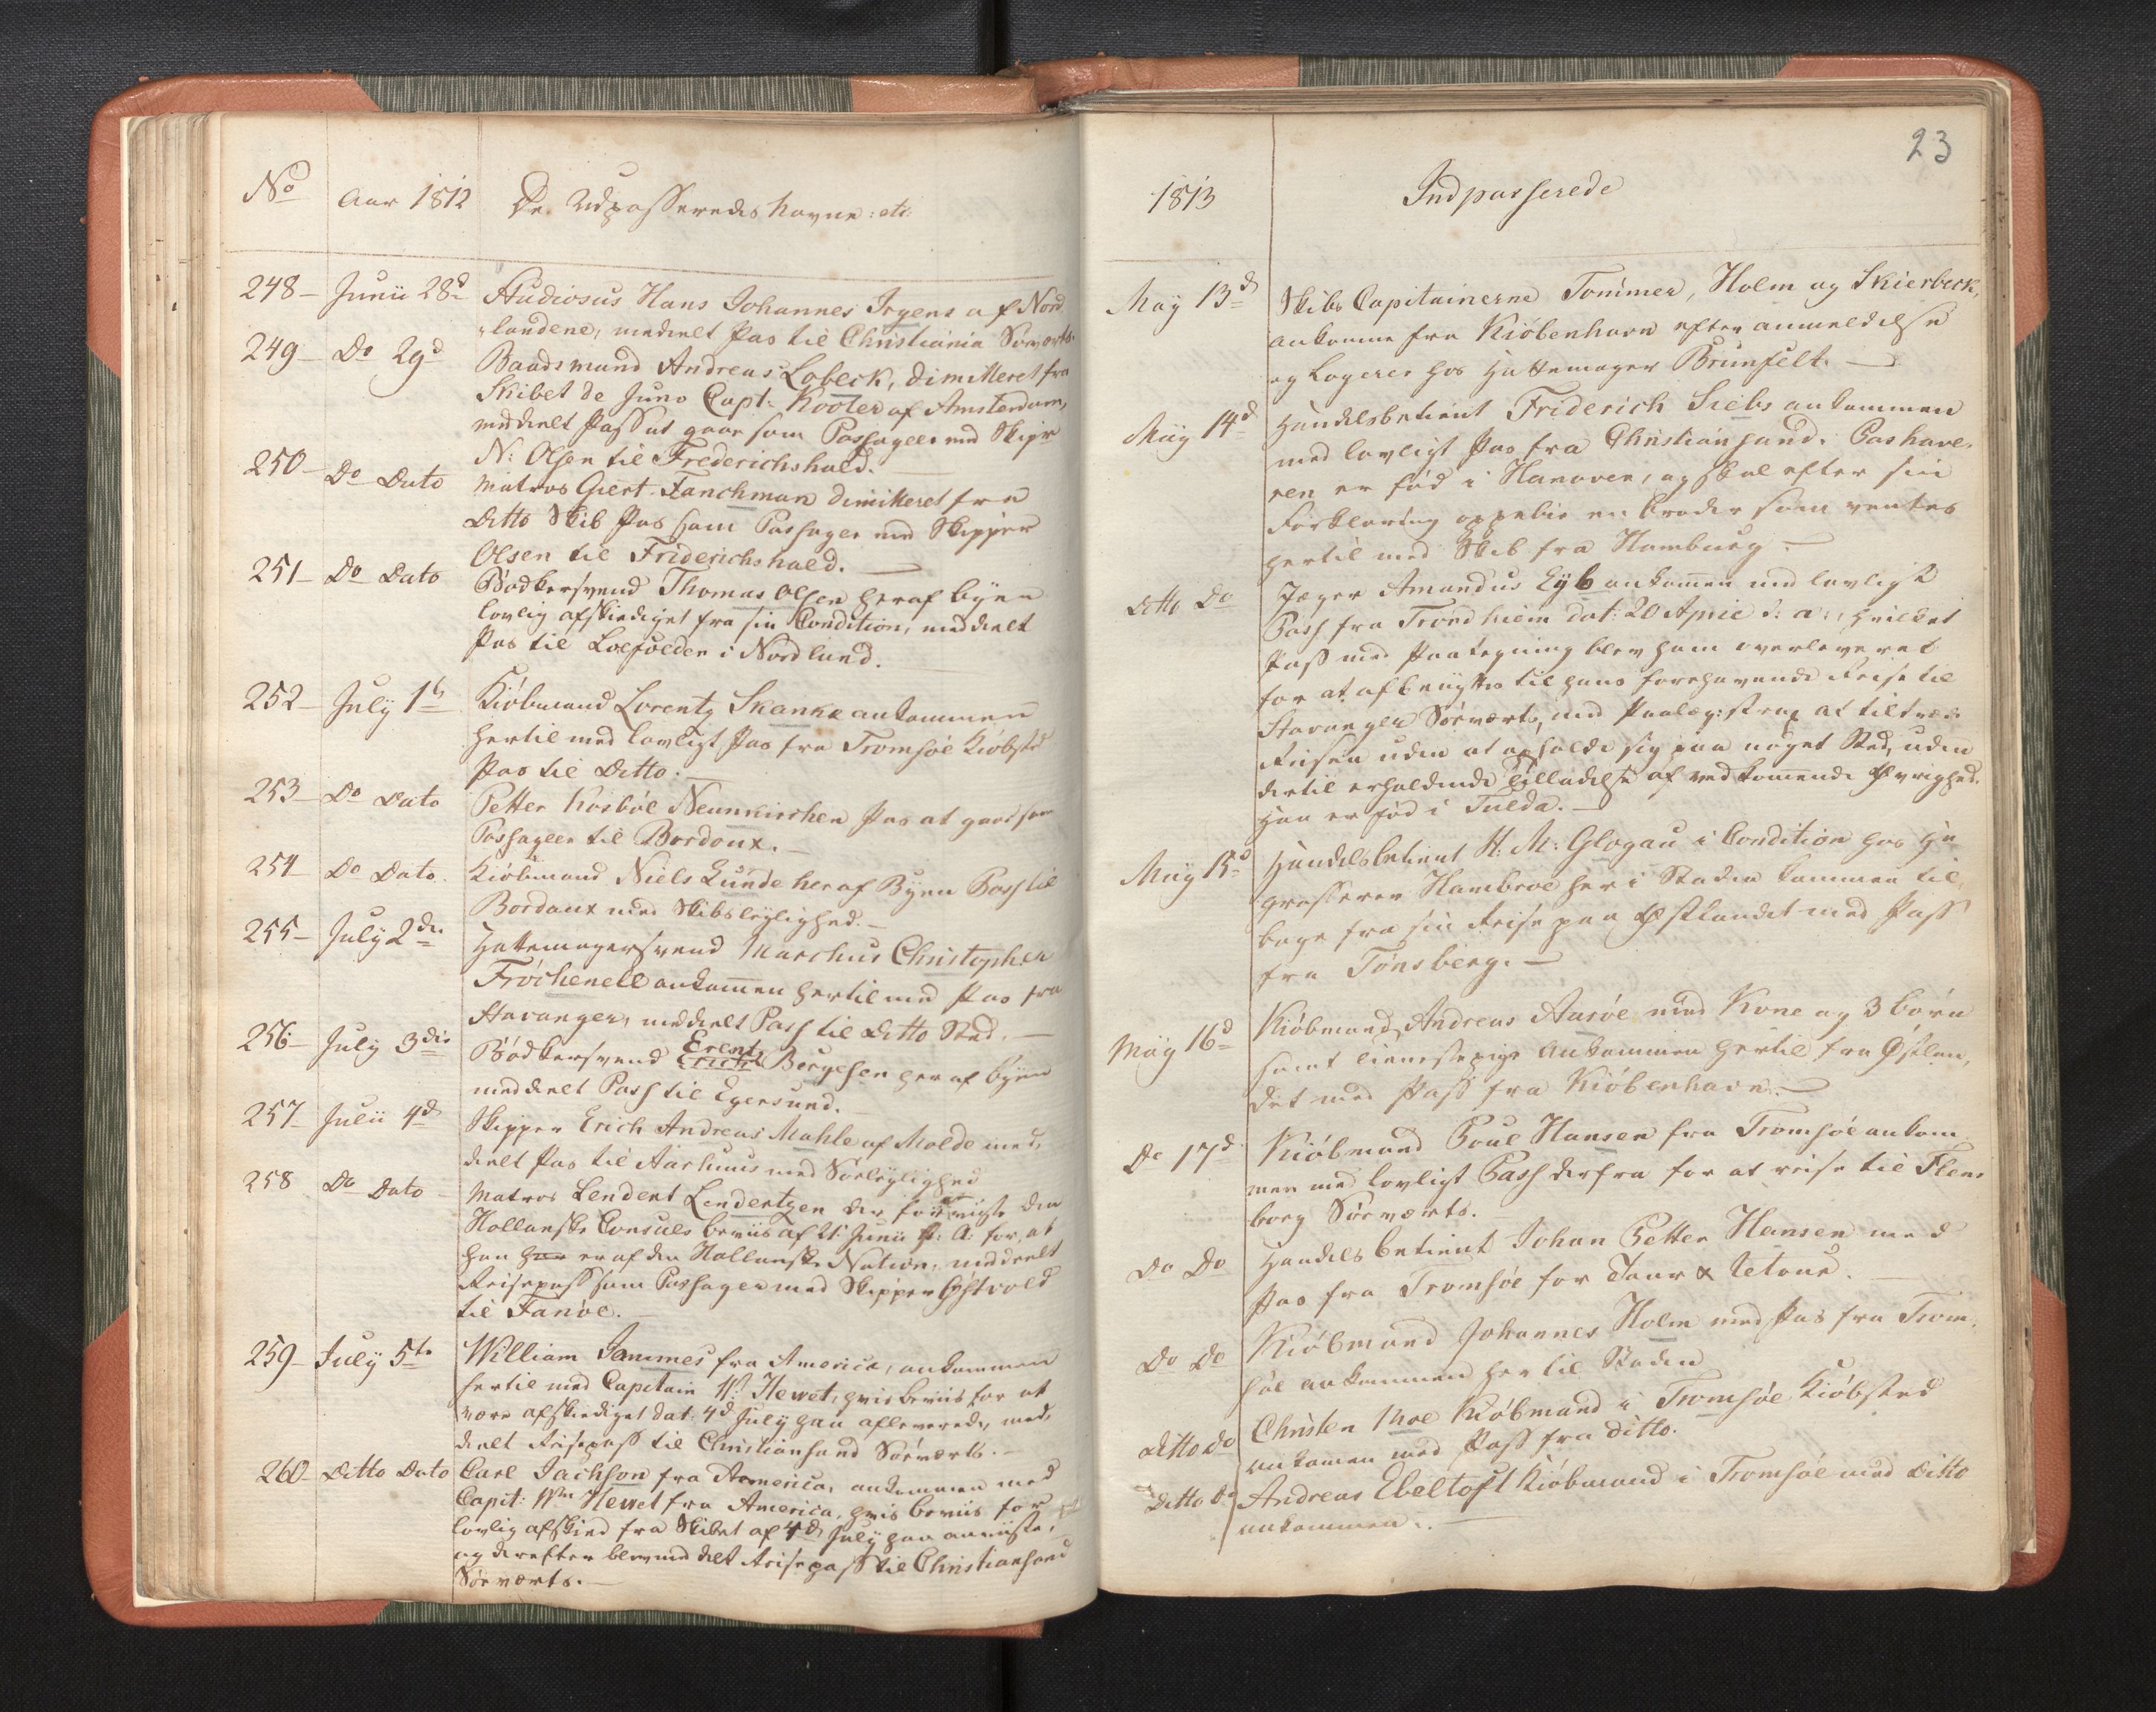 No
Aar 1812
De Udpasseredes Navne: etc:
248 – Junii 28d Studiosus Hans Johannes Irgens af Nord
landene, meddelt Pas til Christiania Sørværts.
249 – Do 29d Baadsmand Andreas Lobeck, dimitteret fra
Skibet de Juno Capt: Kooter af Amsterdam,
meddelt Pass at gaae som Passageer med Skipr
N: Olsen til Frederichshald.
250 – Do Dato Matros Giert Fanchman dimitteret fra
Ditto Skib Pas som Passager med Skipper
Olsen til Friderichshald. –
251 – Do Dato Bødkersvend Thomas Olsen her af byen
lovlig afskediget fra sin Condition, meddelt
Pas til Loefoeden i Nordland.
252 – July 1st Kiøbmand Lorentz Skanke ankommen
hertil med lovligt Pas fra Tromsøe Kiøbsted
Pas til Ditto. –
253 – Do Dato Petter Kosbøl Neunkirchen Pas at gaae som
Passageer til Bordoux. –
254 – Do Dato. Kiøbmand Niels Lunde her af Byen Pass til
Bordaux med Skibsleylighed. –
255 – July 2den Hattemagersvend Marchus Christopher
Frøchenell ankommen hertil med Pas fra
Stavanger, meddelt Pass til Ditto Sted. –
256 – July 3die Bødkersvend Erich Børgesen her af byen
Erent
meddelt Pass til Egersund.
257 – Julii 4d Skipper Erich Andreas Mahle af Molde med,
deelt Pas til Aarhuus med Søeleylighed
258 Do Dato – Matros Lendert Lendertzen der foreviiste den
Hollanske Consuls beviis af 21 Junii h: A: for, at
han er af den Hollanske Nation, meddeelt
Reisepass som Passager med Skipper Giøstvold
til Fanøe. –
259 – July 5te William Jammes fra America, ankommen
hertil med Capitain Wm Hewet, hvis beviis for at
være afskediget dat: 4d July han afleverede, med,
deelt Reisepass til Christiansand Sørværts. –
260 – Ditto Dato Carl Jachson fra America, ankommen med
Capit: Wm Hewet fra America, hvis beviis for
lovlig afskeed fra Skibet af 4d July han anviiste,
og derefter blev meddelt Reisepass til Christiansand
Sørværts. –
23
1813
Indpasserede
May 13d Skibs Capitainerne Tommer, Holm og Skierbeck,
ankomne fra Kiøbenhavn efter anmeldelse
og Logerer hos Hattemager Brunfelt. –
May 14d Handelsbetient Friderich Siebs ankommen
med lovligt Pas fra Christiansand. Pashave,
ren er fød i Hanover, og skal efter sin
Forklaring oppebie en broder som ventes
hertil med Skib fra Hamburg. –
Ditto Do Jæger Amandus Eyb ankommen med lovligt
Pass fra Trondhiem dat: 20 April d: a:, hvilket
Pass med Paategning blev ham overleveret
for at afbenyttes til hans forehavende Reise til
Stavanger Sørværts, med Paalæg: strax at tiltræde
Reisen uden at opholde sig paa noget Sted, uden
dertil erholdende Tilladelse af vedkommende Øvrighed.
Han er fød i Fulda. –
May 15d Handelsbetient H: M: Glogau i Condition hos Gr
grosserer Hambroe her i Staden kommen til,
bage fra sin Reise paa Østlandet med Pass
fra Tønsberg. –
May 16d Kiøbmand Andreas Aarøe med Kone og 3 børn
samt tienestepige ankommen hertil fra Østlan,
det med Pass fra Kiøbenhavn. –
Do 17d Kiøbmand Poul Hansen fra Tromsøe ankom
men med lovligt Pass derfra for at reise til Flens
borg Sørværts.
Do Do Handelsbetient Johan Petter Hansen med
Pas fra Tromsøe for Taur & Retour.
Do Do Kiøbmand Johannes Holm med Pas fra Trom,
søe ankommen her til Staden
Ditto do Christen Moe Kiøbmand i Tromsøe Kiøbsted
ankomen med Pass fra ditto.
Ditto do Andreas Ebeltoft Kiøbmand i Tromsøe med Ditto
ankommen. –